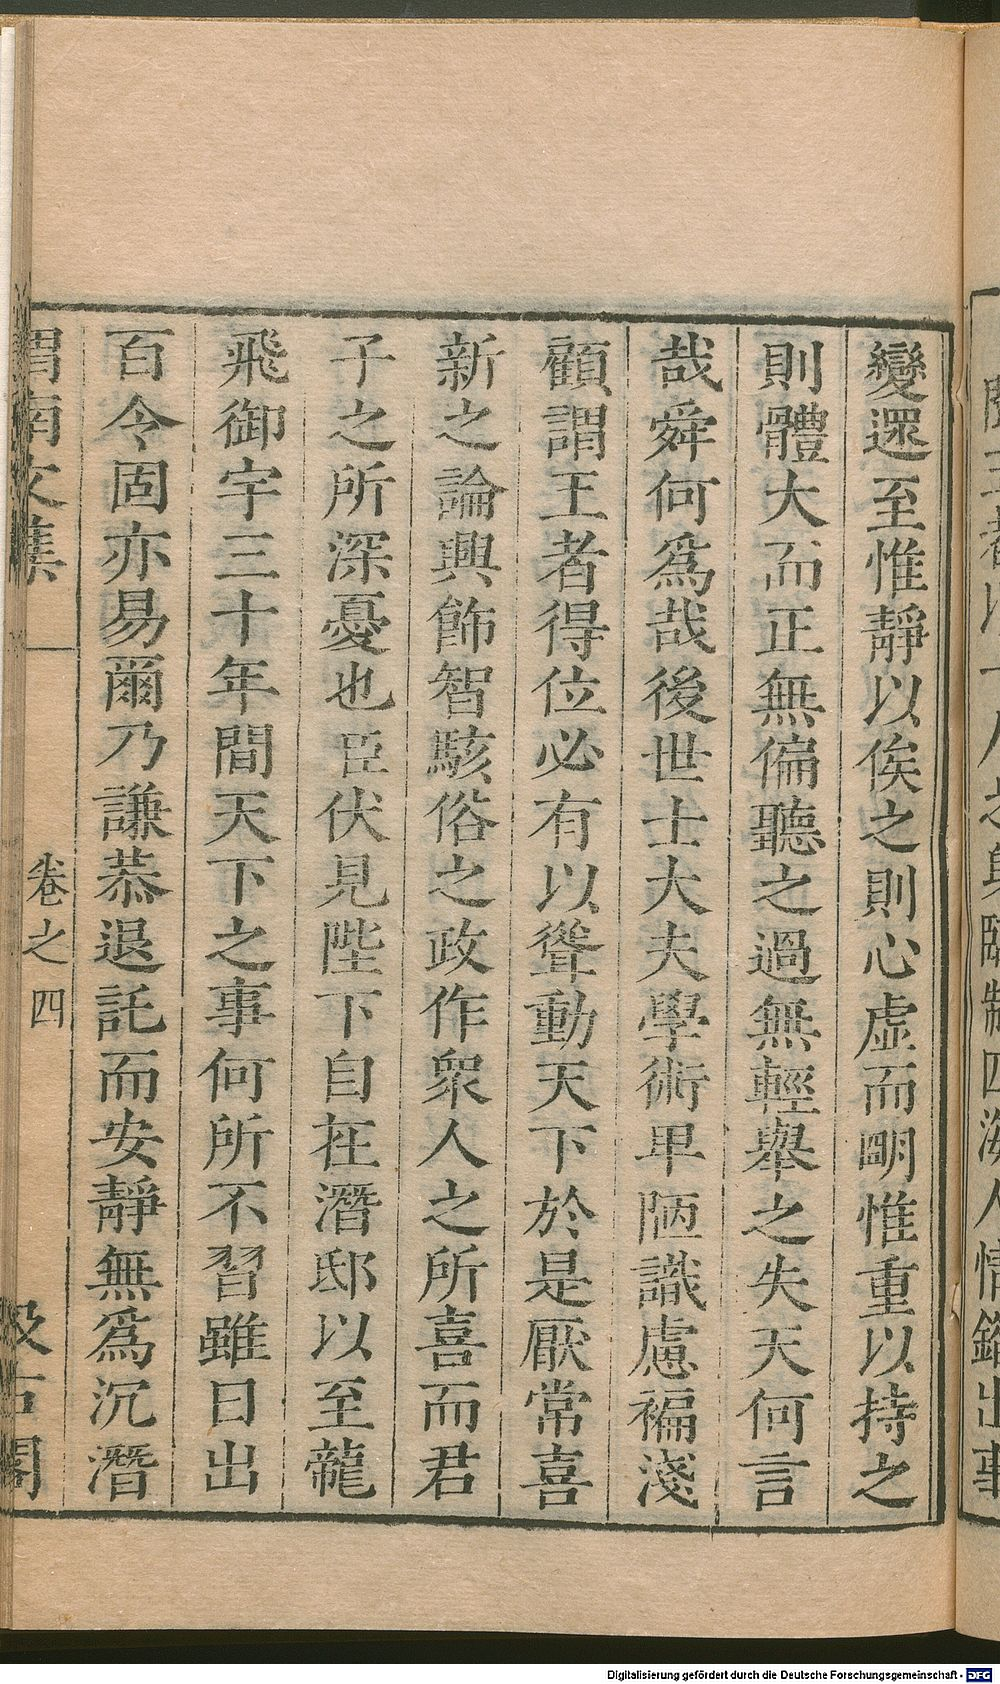 變還至惟靜以俟之則心虛而明惟重以持之
則體大而正無偏聽之過無輕舉之失天何言
哉舜何爲哉後世士大夫學術卑陋識慮褊淺
顧謂王者得位必有以聳動天下於是厭常喜
新之論興飾智駭俗之政作衆人之所喜而君
子之所深憂也臣伏見陛下自在潛邸以至龍
飛御宇三十年間天下之事何所不習雖日出
百令固亦易爾乃謙恭退託而安靜無爲沉潛
渭南文集
卷之四
汲古閣
Digitalisierung gefördert durch die Deutsche Forschungsgemeinschaft - DFG